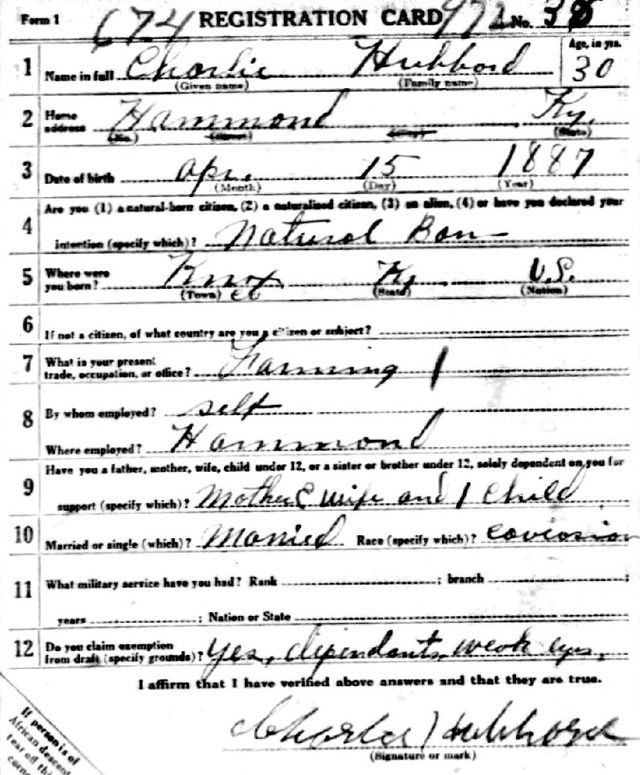 Form 1 674 REGISTRATION CARD 972 No. 38
1 Name in full Charlie Hubbord Age, in yrs. 30
(Given name) (Family name)
2 Home address Hammond Ky.
(No.) (Street) (City) (State)
3 Date of birth Apr. 15 1887
(Month) (Day) (Year)
Are you (1) a natural-born citizen, (2) a naturalized citizen, (3) an alien, (4) or have you declared your
4 intention (specify which)? Natural Born
5 Where were you born? Knox Ky U.S.
(Town) Co (State) (Nation)
6 If not a citizen, of what country are you a citizen or subject?
7 What is your present trade, occupation, or office? Farming 1
8 By whom employed? self
Where employed? Hammond
9 Have you a father, mother, wife, child under 12, or a sister or brother under 12, solely dependent on you for
support (specify which)? Mother & wife and 1 child
10 Married or single (which)? Married Race (specify which)? covcasion
11 What military service have you had? Rank ; branch ;
years ; Nation or State
12 Do you claim exemption from draft (specify grounds)? Yes, dependants, weak eyes.
I affirm that I have verified above answers and that they are true.
Charlie Hubbord
(Signature or mark)
If person is of
African descent
tear off this
corner